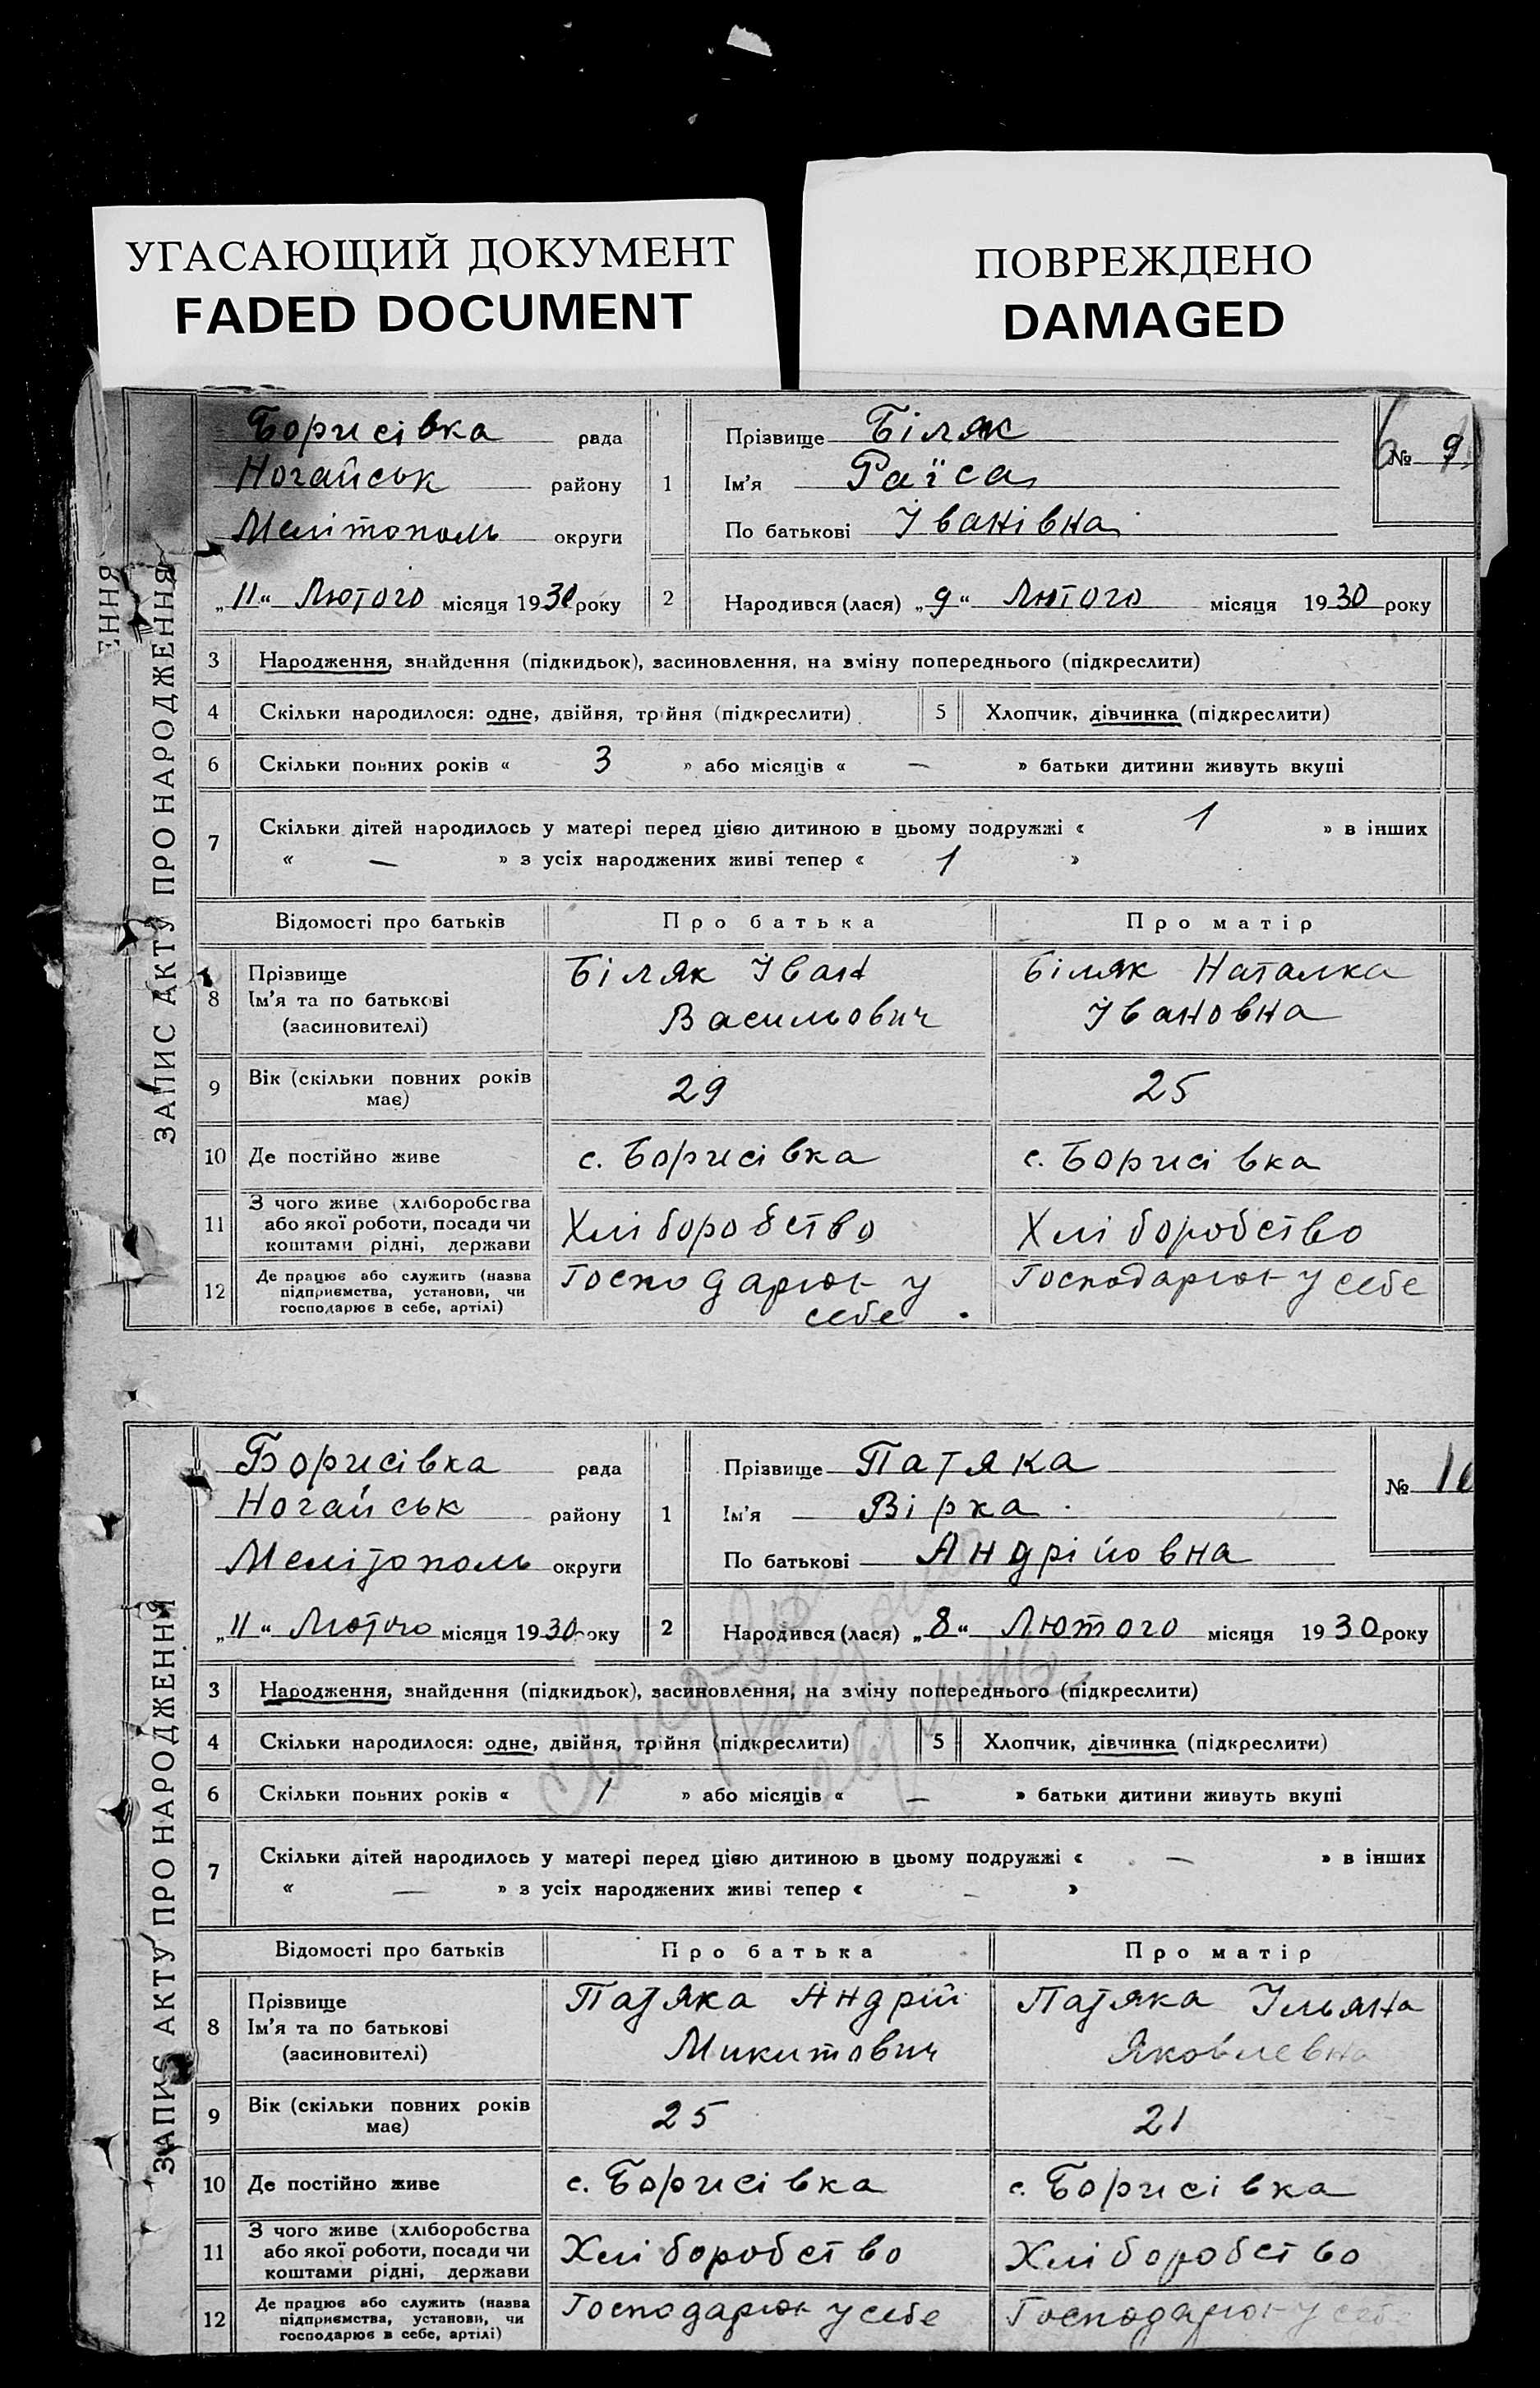 УГАСАЮЩИЙ ДОКУМЕНТ
FADED DOCUMENT
ПОВРЕЖДЕНО
DAMAGED
ЕННЯ
ЗАПИС АКТУ ПРО НАРОДЖЕННЯ
Борисівка рада
Ногайськ району
Мелітополь округи
„11“ Лютого місяця 1930 року
1 Прізвище Біляк
Ім'я Раїса
По батькові Іванівна
№ 9
2 Народився (лася) „9“ Лютого місяця 1930 року
3 Народження, знайдення (підкидьок), засиновлення, на зміну попереднього (підкреслити)
4 Скільки народилося: одне, двійня, трійня (підкреслити) 5 Хлопчик, дівчинка (підкреслити)
6 Скільки повних років « 3 » або місяців « — » батьки дитини живуть вкупі
7 Скільки дітей народилось у матері перед цією дитиною в цьому подружжі « 1 » в інших
« — » з усіх народжених живі тепер « 1 »
Відомості про батьків Про батька Про матір
8 Прізвище Біляк Іван Біляк Наталка
Ім'я та по батькові Васильович Івановна
(засиновителі)
9 Вік (скільки повних років 29 25
має)
10 Де постійно живе с. Борисівка с. Борисівка
З чого живе (хліборобства
11 або якої роботи, посади чи Хліборобство Хліборобство
коштами рідні, держави
Де працює або служить (назва Господарюк у Господарюк у себе
12 підприємства, установи, чи себе
господарює в себе, артілі)
ЗАПИС АКТУ ПРО НАРОДЖЕННЯ
Борисівка рада
Ногайськ району
Мелітополь округи
„11“ Лютого місяця 1930 року
1 Прізвище Патяка
Ім'я Вірка
По батькові Андрійовна
№ 10
2 Народився (лася) „8“ Лютого місяця 1930 року
3 Народження, знайдення (підкидьок), засиновлення, на зміну попереднього (підкреслити)
4 Скільки народилося: одне, двійня, трійня (підкреслити) 5 Хлопчик, дівчинка (підкреслити)
6 Скільки повних років « 1 » або місяців « — » батьки дитини живуть вкупі
7 Скільки дітей народилось у матері перед цією дитиною в цьому подружжі « — » в інших
« — » з усіх народжених живі тепер « — »
Відомості про батьків Про батька Про матір
8 Прізвище Патяка Андрій Патяка Ільяна
Ім'я та по батькові Микитович Яковлевна
(засиновителі)
9 Вік (скільки повних років 25 21
має)
10 Де постійно живе с. Борисівка с. Борисівка
З чого живе (хліборобства
11 або якої роботи, посади чи Хліборобство Хліборобство
коштами рідні, держави
Де працює або служить (назва Господарюк у себе Господарюк у себе
12 підприємства, установи, чи
господарює в себе, артілі)